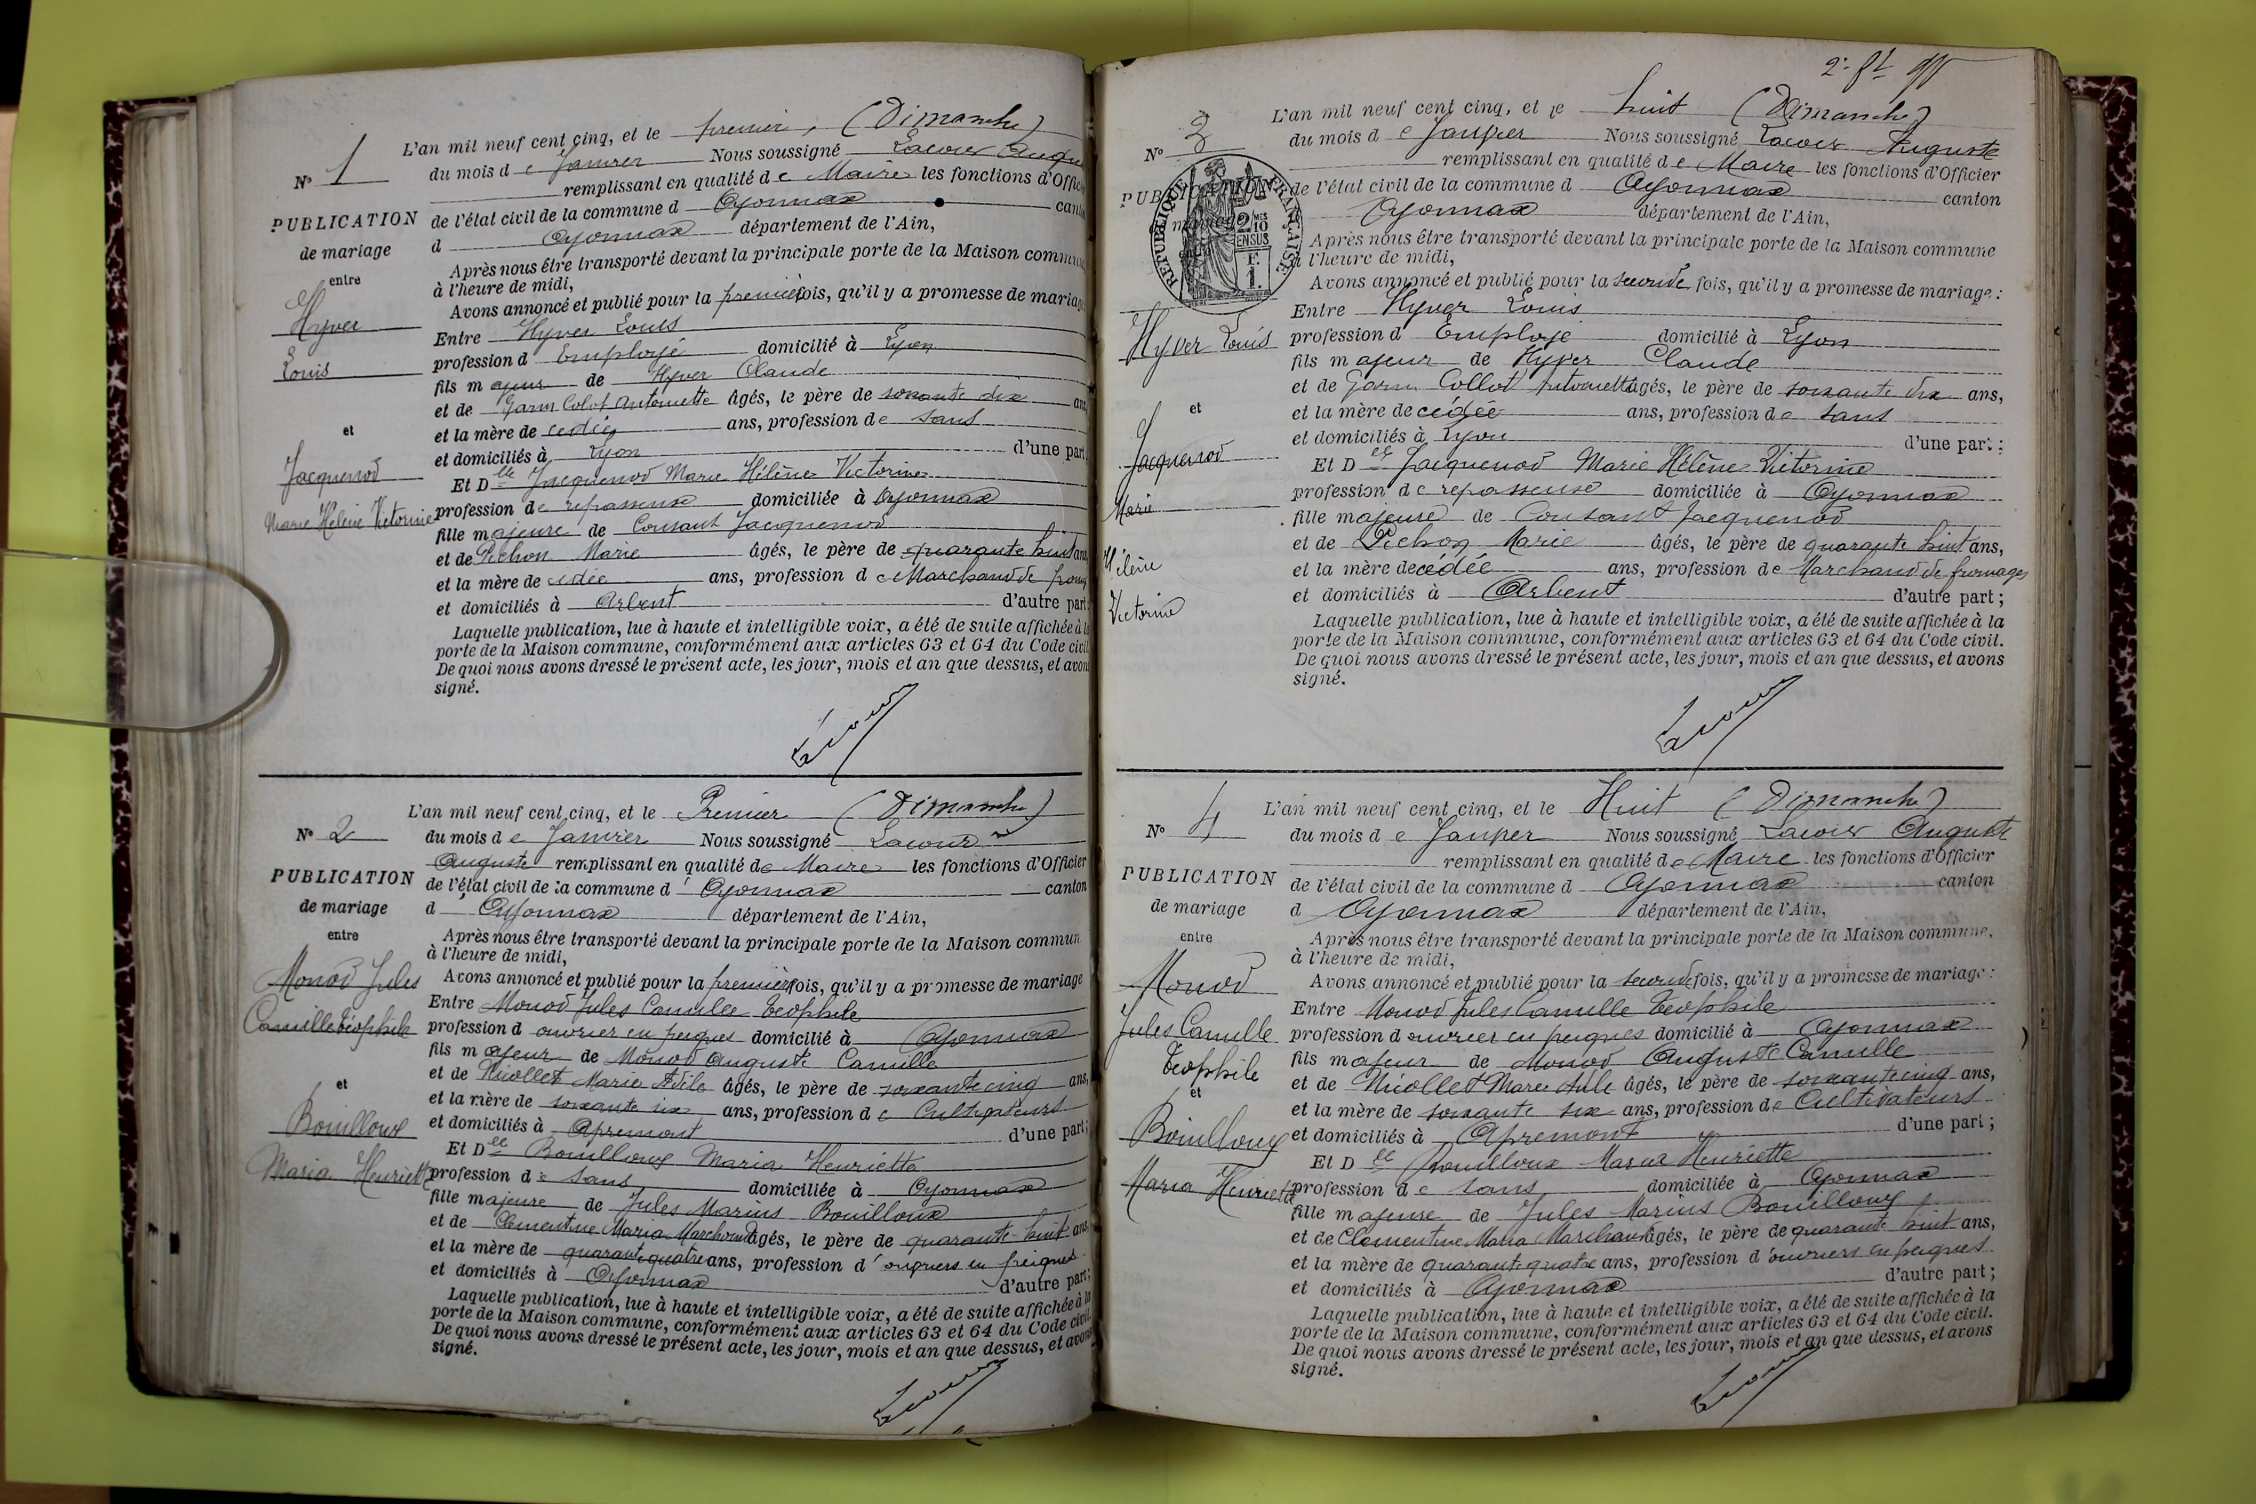 L'an mil neuf cent cinq, et le premier, (Dimanche)
N° 1 du mois de Janvier Nous soussigné Lacour Augu
remplissant en qualité de Maire les fonctions d'Offici
PUBLICATION de l'état civil de la commune d Oyonnax canton
de mariage d Oyonnax département de l'Ain,
entre Après nous être transporté devant la principale porte de la Maison commune
à l'heure de midi,
Avons annoncé et publié pour la première fois, qu'il y a promesse de mariage
Hyver Entre Hyver Louis
profession d Employé domicilié à Lyon
Louis fils majeur de Hyver Claude
et de Garin Colot Antoinette âgés, le père de soixante dix ans,
et et la mère de cédée ans, profession de sans
et domiciliés à Lyon d'une part
Jacquenod Et Dlle Jacquenod Marie Hélène Victorine
profession de repasseuse domiciliée à Oyonnax
Marie Hélène Victorine fille majeure de Constant Jacquenod
et de Pichon Marie âgés, le père de quarante huit ans,
et la mère de cédée ans, profession de Marchand de from
et domiciliés à Arbent d'autre part
Laquelle publication, lue à haute et intelligible voix, a été de suite affichée à la
porte de la Maison commune, conformément aux articles 63 et 64 du Code civil
De quoi nous avons dressé le présent acte, les jour, mois et an que dessus, et avons
signé.
Lacour
L'an mil neuf cent cinq, et le Premier (Dimanche)
N° 2 du mois de Janvier Nous soussigné Lacour
Auguste remplissant en qualité de Maire les fonctions d'Officier
PUBLICATION de l'état civil de la commune d'Oyonnax canton
de mariage d'Oyonnax département de l'Ain,
entre Après nous être transporté devant la principale porte de la Maison commun
à l'heure de midi,
Monod Jules Avons annoncé et publié pour la première fois, qu'il y a promesse de mariage
Entre Monod Jules Camille Téophile
Camille Téophile profession d ouvrier en peignes domicilié à Oyonnax
fils majeur de Monod Auguste Camille
et et de Nicollet Marie Adèle âgés, le père de soixante cinq ans,
et la mère de soixante six ans, profession de Cultivateurs
Bouilloux et domiciliés à Apremont d'une part;
Et Dlle Bouilloux Maria Henriette
Maria Henriette profession de sans domiciliée à Oyonnax
fille majeure de Jules Marius Bouilloux
et de Clementine Maria Marchand âgés, le père de quarante huit ans,
et la mère de quarante quatre ans, profession d'ouvriers en peignes
et domiciliés à Oyonnax d'autre part;
Laquelle publication, lue à haute et intelligible voix, a été de suite affichée à la
porte de la Maison commune, conformément aux articles 63 et 64 du Code civil.
De quoi nous avons dressé le présent acte, les jour, mois et an que dessus, et avons
signé.
Lacour
2e ft
L'an mil neuf cent cinq, et le huit (Dimanche)
N° 3 du mois de Janvier Nous soussigné Lacour Auguste
remplissant en qualité de Maire les fonctions d'Officier
PUBLICATION de l'état civil de la commune d Oyonnax canton
mariage Oyonnax département de l'Ain,
RÉPUBLIQUE FRANÇAISE 2/10 MES EN SUS 1 F.
Après nous être transporté devant la principale porte de la Maison commune
à l'heure de midi,
Avons annoncé et publié pour la seconde fois, qu'il y a promesse de mariage :
Entre Hyver Louis
Hyver Louis profession d Employé domicilié à Lyon
fils majeur de Hyver Claude
et de Garin Collot Antoinette âgés, le père de soixante dix ans,
et et la mère de cédée ans, profession de sans
et domiciliés à Lyon d'une part ;
Jacquenod Et Dlle Jacquenod Marie Hélène Victorine
profession de repasseuse domiciliée à Oyonnax
Marie fille majeure de Constant Jacquenod
et de Pichon Marie âgés, le père de quarante huit ans,
Hélène et la mère de cédée ans, profession de Marchand de fromages
Victorine et domiciliés à Arbent d'autre part ;
Laquelle publication, lue à haute et intelligible voix, a été de suite affichée à la
porte de la Maison commune, conformément aux articles 63 et 64 du Code civil.
De quoi nous avons dressé le présent acte, les jour, mois et an que dessus, et avons
signé.
Lacour
L'an mil neuf cent cinq, et le Huit (Dimanche)
N° 4 du mois de Janvier Nous soussigné Lacour Auguste
remplissant en qualité de Maire les fonctions d'Officier
PUBLICATION de l'état civil de la commune d Oyonnax canton
de mariage d Oyonnax département de l'Ain,
entre Après nous être transporté devant la principale porte de la Maison commune,
à l'heure de midi,
Monod Avons annoncé et publié pour la seconde fois, qu'il y a promesse de mariage :
Entre Monod Jules Camille Téophile
Jules Camille profession d ouvrier en peignes domicilié à Oyonnax
Téophile fils majeur de Monod Auguste Camille
et et de Nicollet Marie Adèle âgés, le père de soixante cinq ans,
et la mère de soixante six ans, profession de Cultivateurs
Bouilloux et domiciliés à Apremont d'une part ;
Et Dlle Bouilloux Maria Henriette
Maria Henriette profession de sans domiciliée à Oyonnax
fille majeure de Jules Marius Bouilloux
et de Clementine Maria Marchand âgés, le père de quarante huit ans,
et la mère de quarante quatre ans, profession d'ouvriers en peignes
et domiciliés à Oyonnax d'autre part ;
Laquelle publication, lue à haute et intelligible voix, a été de suite affichée à la
porte de la Maison commune, conformément aux articles 63 et 64 du Code civil.
De quoi nous avons dressé le présent acte, les jour, mois et an que dessus, et avons
signé.
Lacour